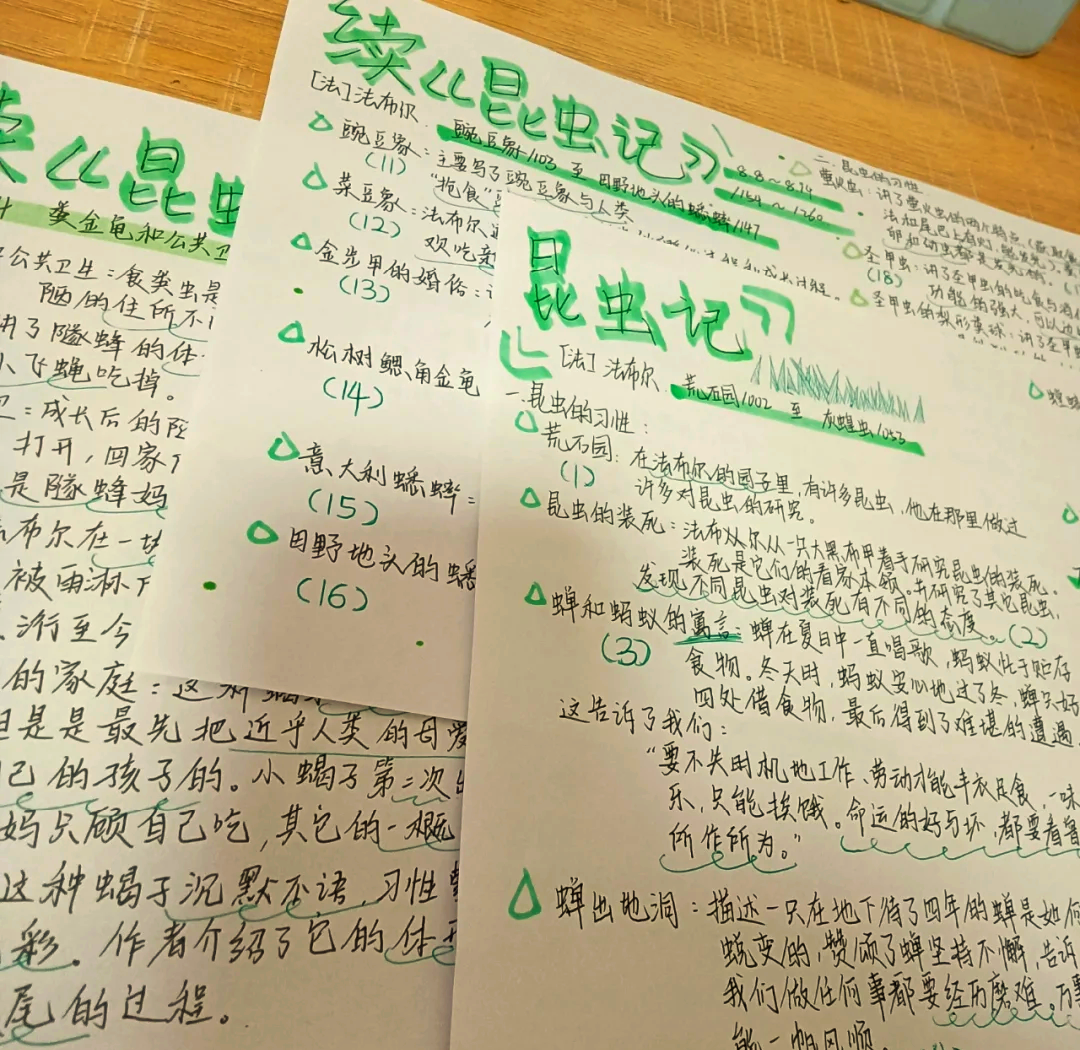 续《昆虫
黄金龟和公共卫
公共卫生：食粪虫是
陋的住所不
讲了隧蜂的体
飞蝇吃掉。
成长后的
打开，回家
是隧蜂妈
布尔在一块
被雨淋
渐至今
的家庭：这种蝎
但是是最先把近乎人类的母爱
己的孩子的。小蝎子第三次
妈只顾自己吃，其它的一概
这种蝎子沉默不语，习性
彩。作者介绍了它的体
尾的过程。
续《昆虫记》
[法]法布尔
豌豆象1103 至 田野地头的蟋蟀1147
8.8～8.14
1154～1260
豌豆象：主要写了豌豆象与人类
(11)
"抢食"
菜豆象：法布尔
(12)
欢吃亲
金步甲的婚俗：
(13)
松树鳃角金龟
(14)
意大利蟋蟀：
(15)
田野地头的蟋
(16)
二.昆虫的习性
萤火虫：讲了萤火虫的两个特点
法和尾巴上有灯
卵和幼虫都是发光体。
圣甲虫：讲了圣甲虫的吃食与消化
(18)
功能的强大，可以边
圣甲虫的梨形粪球：讲了圣甲虫
昆虫记》
[法]法布尔
荒石园1002 至 灰蝗虫1053
一.昆虫的习性：
荒石园：在法布尔的园子里，有许多昆虫，他在那里做过
(1)
许多对昆虫的研究。
昆虫的装死：法布尔从一只大黑布甲着手研究昆虫的装死。
装死是它们的看家本领。并研究了其它昆虫，
发现不同昆虫对装死有不同的态度。(2)
蝉和蚂蚁的寓言：蝉在夏日中一直唱歌，蚂蚁忙于贮存
(3)
食物。冬天时，蚂蚁安心地过了冬，蝉只好
四处借食物，最后得到了难堪的遭遇。
这告诉了我们：
"要不失时机地工作、劳动才能丰衣足食，一味
乐，只能挨饿。命运的好与坏，都要看
所作所为。"
蝉出地洞：描述一只在地下待了四年的蝉是如何
蜕变的，赞颂了蝉坚持不懈，告诉
我们做任何事都要经历磨难。万事
能一帆风顺。